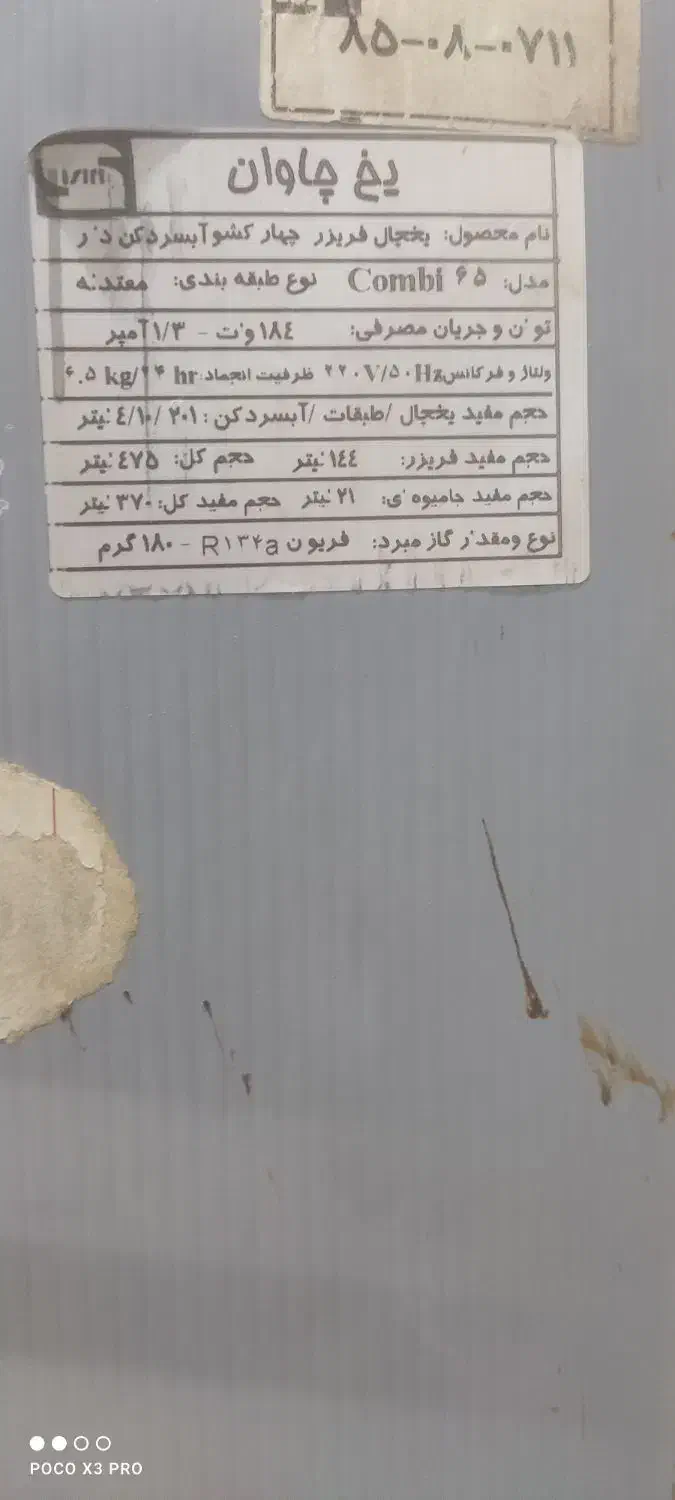 ۸۵-۰۸-۰۷۱۱
یخ چاوان
نام محصول: یخچال فریزر چهار کشو آبسردکن دار
مدل: Combi ۶۵ نوع طبقه بندی: معتدله
توان و جریان مصرفی: ۱۸٤ وات - ۱/۳ آمپر
ولتاژ و فرکانس ۲۲۰V/۵۰Hz ظرفیت انجماد: ۶.۵ kg/۲۴ hr
حجم مفید یخچال /طبقات /آبسردکن: ۲۰۱ /۱۰/٤ لیتر
حجم مفید فریزر: ۱٤٤ لیتر حجم کل: ٤۷۵ لیتر
حجم مفید جامیوه ای: ۲۱ لیتر حجم مفید کل: ۳۷۰ لیتر
نوع ومقدار گاز مبرد: فریون R۱۳۴a - ۱۸۰ گرم
POCO X3 PRO